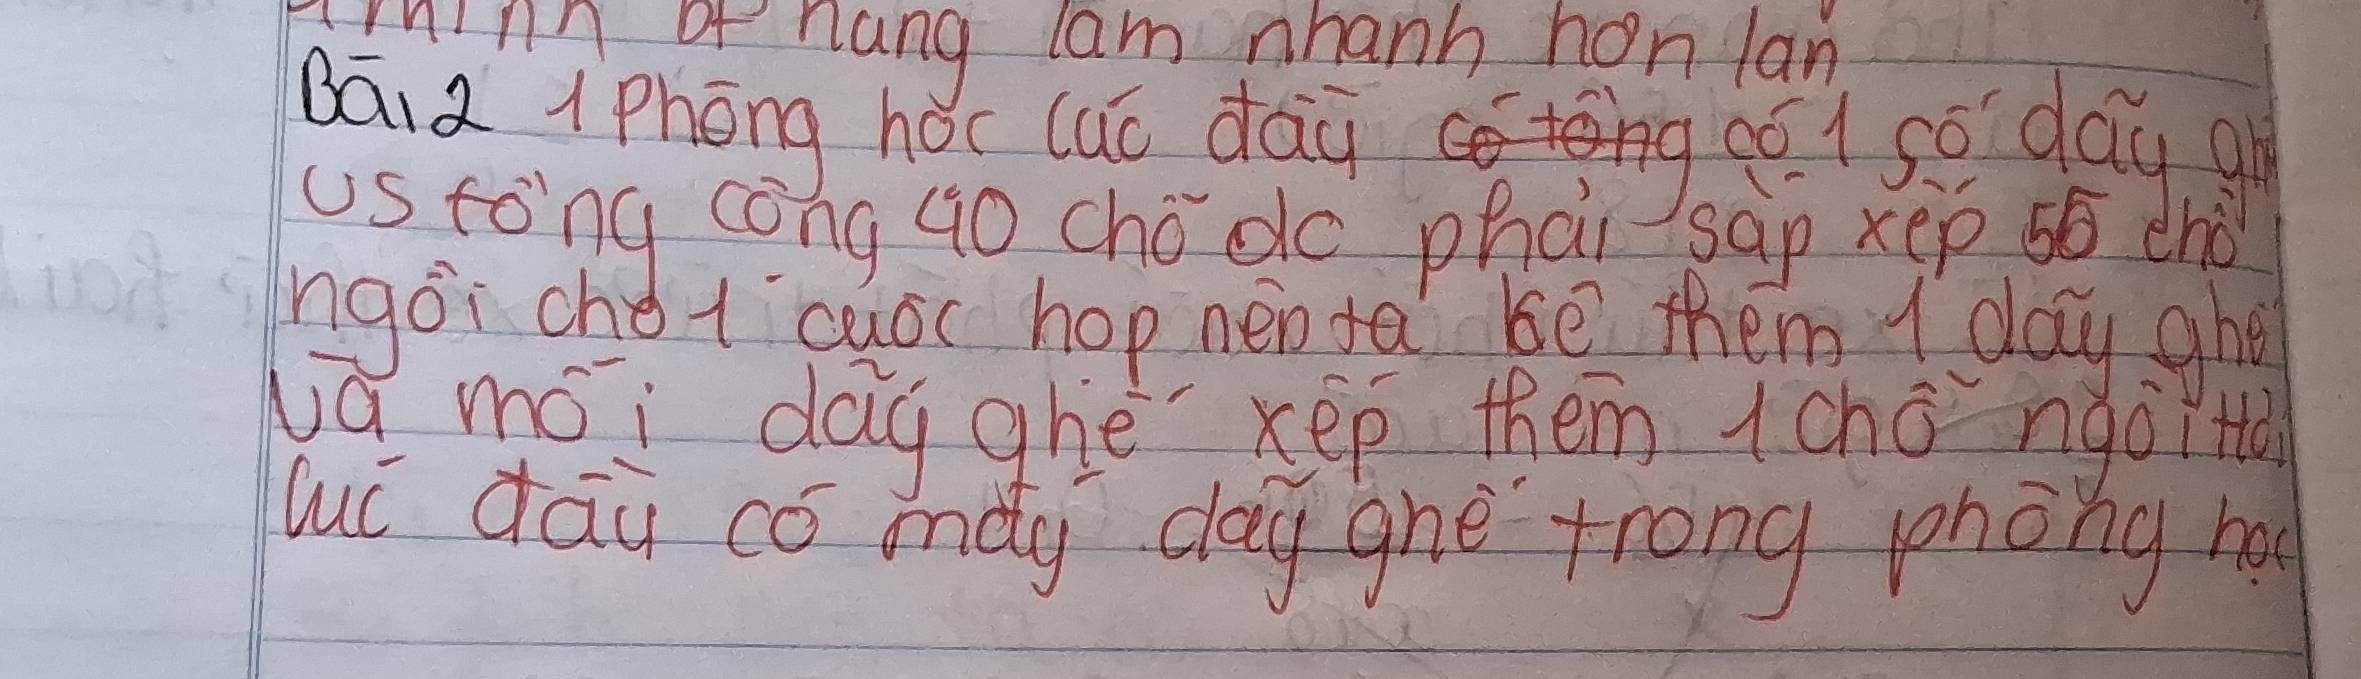 hàng làm nhanh hơn lần
Bài 2 1 phòng học lúc đầy có tổng có 1 số dãy gh
vs tổng cộng 40 chỗ dc phải sắp xếp 55 chỗ
ngồi cho 1 cuộc họp nên ta kê thêm 1 dãy ghế
và mỗi dãy ghế xếp thêm 1 chỗ ngồi Hỏi
lúc đầy có mấy dãy ghế trong phòng học